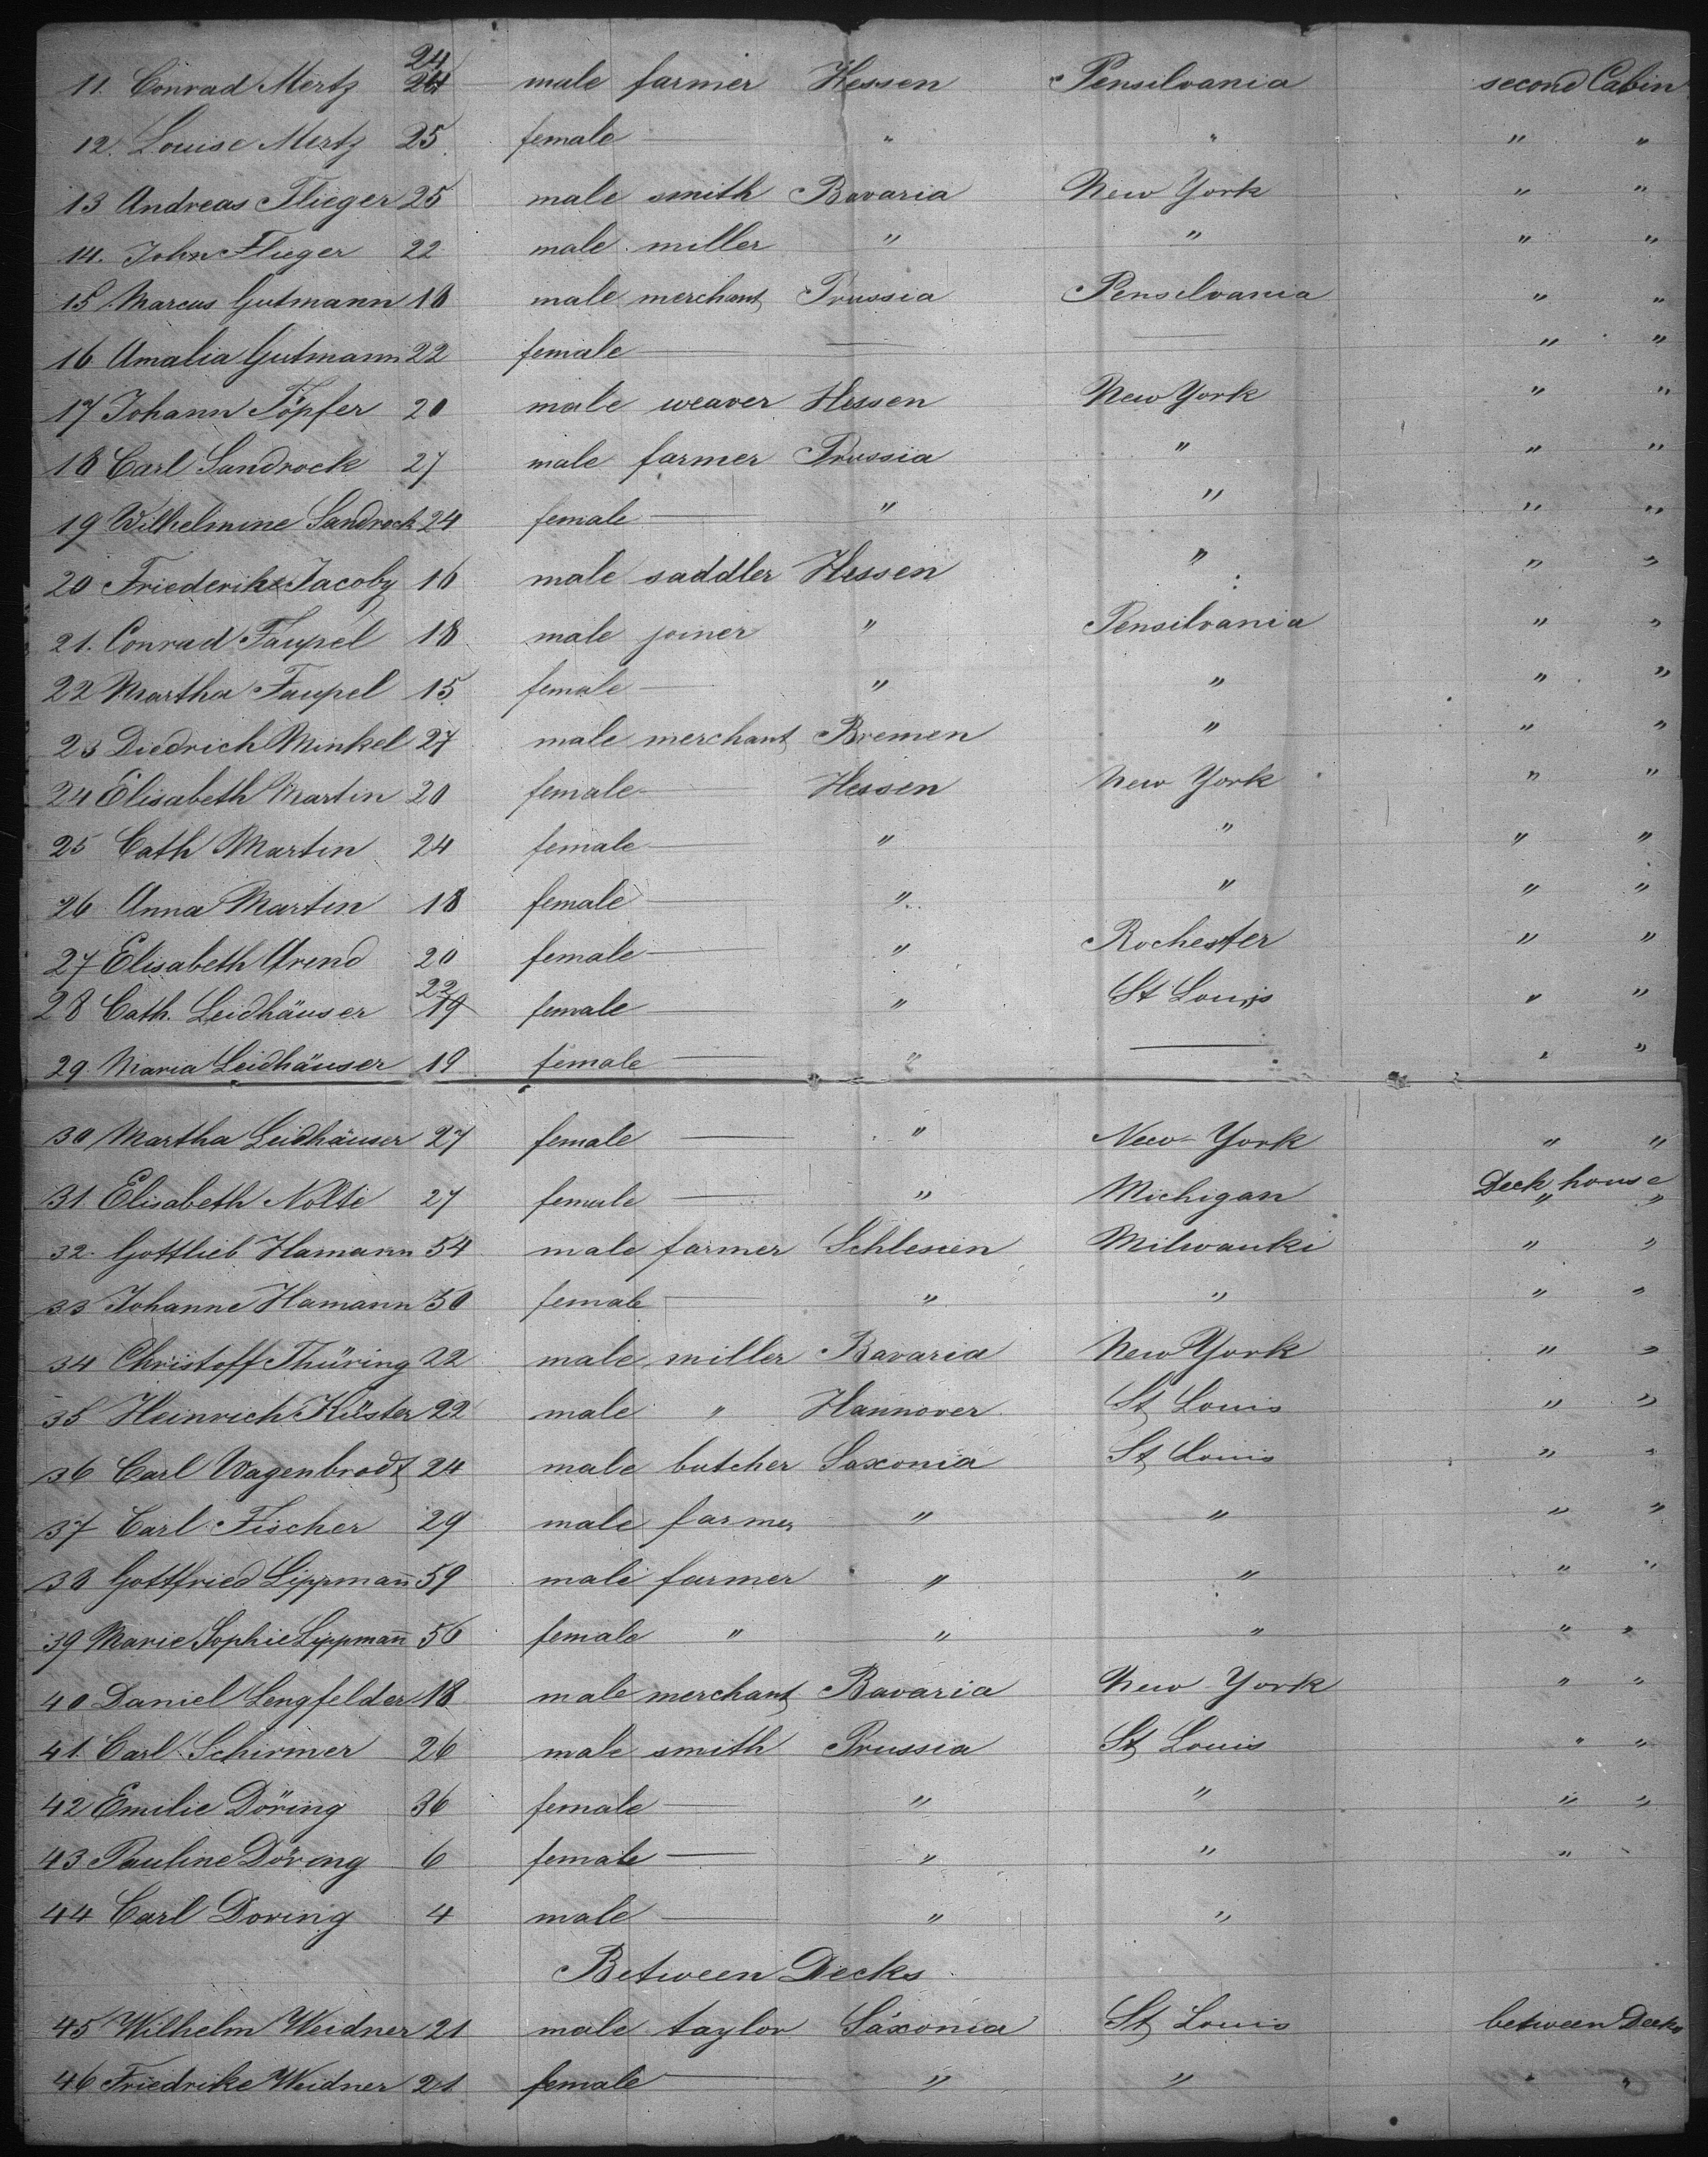 11. Conrad Mertz 24 24 male farmer Hessen Pensilvania second Cabin
12. Louise Mertz 25 female — " " " "
13 Andreas Flieger 25 male smith Bavaria New York " "
14. John Flieger 22 male miller " " " "
15 Marcus Gutmann 18 male merchant Prussia Pensilvania " "
16 Amalia Gutmann 22 female — — — " "
17 Johann Töpfer 20 male weaver Hessen New York " "
18 Carl Sandrock 27 male farmer Prussia " " "
19 Wilhelmine Sandrock 24 female — " " " "
20 Friederike Jacoby 16 male saddler Hessen " " "
21. Conrad Faupel 18 male joiner " Pensilvania " "
22 Martha Faupel 15 female — " " " "
23 Diedrich Minkel 27 male merchant Bremen " " "
24 Elisabeth Martin 20 female — Hessen New York " "
25 Cath Martin 24 female — " " " "
26 Anna Martin 18 female — " " " "
27 Elisabeth Arend 20 female — " Rochester " "
28 Cath. Leidhäuser 22 19 female — " St Louis " "
29. Maria Leidhäuser 19 female — " — " "
30 Martha Leidhäuser 27 female — " New-York " "
31. Elisabeth Nolte 27 female — " Michigan Deck house " "
32. Gottlieb Hamann 54 male farmer Schlesien Milwauki " "
33 Johanne Hamann 50 female — " " " "
34 Christoff Thüring 22 male miller Bavaria New York " "
35 Heinrich Küster 22 male " Hannover St Louis " "
36 Carl Wagenbrodt 24 male butcher Saxonia St Louis " "
37 Carl Fischer 29 male farmer " " " "
38 Gottfried Lippmañ 59 male farmer " " " "
39 Marie Sophie Lippmañ 56 female " " " " "
40 Daniel Lengfelder 18 male merchant Bavaria New York " "
41. Carl Schirmer 26 male smith Prussia St Louis " "
42 Emilie Döring 36 female — " " " "
43 Pauline Döring 6 female — " " "
44 Carl Doring 4 male — " "
Between Decks
45 Wilhelm Weidner 21 male taylor Saxonia St Louis between Decks
46 Friedrike Weidner 21 female — " " " "